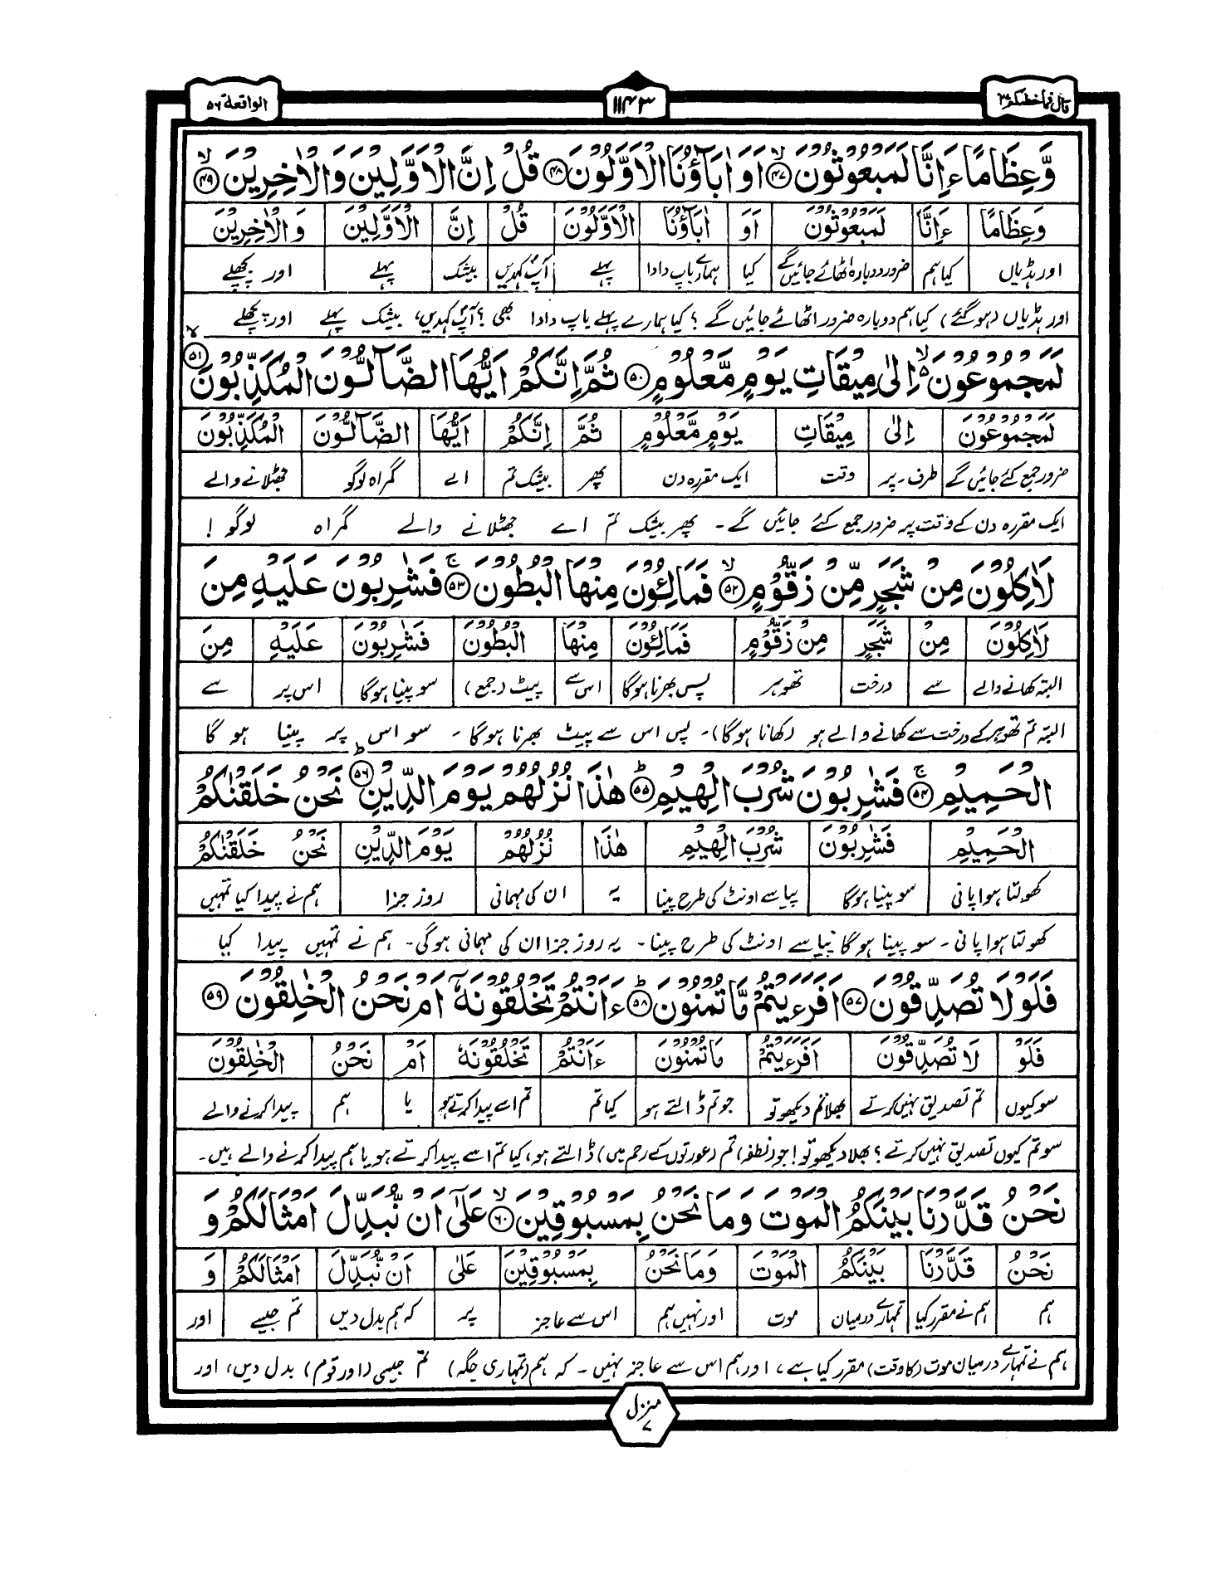 قال فما خطبكم ٢٧
١١٤٣
الواقعة ٥٦
وَّعِظَامًا ءَاِنَّا لَمَبْعُوْثُوْنَ ﴿۴۷﴾ اَوَ اٰبَآؤُنَا الْاَوَّلُوْنَ ﴿۴۸﴾ قُلْ اِنَّ الْاَوَّلِيْنَ وَالْاٰخِرِيْنَ ﴿۴۹﴾
وَعِظَامًا ءَاِنَّا لَمَبْعُوْثُوْنَ اَوَ اٰبَآؤُنَا الْاَوَّلُوْنَ قُلْ اِنَّ الْاَوَّلِيْنَ وَالْاٰخِرِيْنَ
اور ہڈیاں کیا ہم ضرور دوبارہ اٹھائے جائیں گے کیا ہمارے باپ دادا پہلے آپ کہدیں بیشک پہلے اور پچھلے
اور ہڈیاں (ہو گئے) کیا ہم دوبارہ ضرور اٹھائے جائیں گے؟ کیا ہمارے پہلے باپ دادا بھی؟ آپ کہدیں، بیشک پہلے اور پچھلے
لَمَجْمُوْعُوْنَ اِلٰى مِيْقَاتِ يَوْمٍ مَّعْلُوْمٍ ﴿۵۰﴾ ثُمَّ اِنَّكُمْ اَيُّهَا الضَّآلُّوْنَ الْمُكَذِّبُوْنَ ﴿۵۱﴾
لَمَجْمُوْعُوْنَ اِلٰى مِيْقَاتِ يَوْمٍ مَّعْلُوْمٍ ثُمَّ اِنَّكُمْ اَيُّهَا الضَّآلُّوْنَ الْمُكَذِّبُوْنَ
ضرور جمع کئے جائیں گے طرف۔پر وقت ایک مقررہ دن پھر بیشک تم اے گمراہ لوگو جھٹلانے والے
ایک مقررہ دن کے وقت پر ضرور جمع کئے جائیں گے۔ پھر بیشک تم اے جھٹلانے والے گمراہ لوگو!
لَاٰكِلُوْنَ مِنْ شَجَرٍ مِّنْ زَقُّوْمٍ ﴿۵۲﴾ فَمَالِئُوْنَ مِنْهَا الْبُطُوْنَ ﴿۵۳﴾ فَشٰرِبُوْنَ عَلَيْهِ مِنَ
لَاٰكِلُوْنَ مِنْ شَجَرٍ مِنْ زَقُّوْمٍ فَمَالِئُوْنَ مِنْهَا الْبُطُوْنَ فَشٰرِبُوْنَ عَلَيْهِ مِنَ
البتہ کھانے والے سے درخت تھوہر پس بھرنا ہوگا اس سے پیٹ (جمع) سو پینا ہوگا اس پر سے
البتہ تم تھوہر کے درخت سے کھانے والے ہو (کھانا ہوگا)۔ پس اس سے پیٹ بھرنا ہوگا۔ سو اس پر پینا ہو گا
الْحَمِيْمِ ﴿۵۴﴾ فَشٰرِبُوْنَ شُرْبَ الْهِيْمِ ﴿۵۵﴾ هٰذَا نُزُلُهُمْ يَوْمَ الدِّيْنِ ﴿۵۶﴾ نَحْنُ خَلَقْنٰكُمْ
الْحَمِيْمِ فَشٰرِبُوْنَ شُرْبَ الْهِيْمِ هٰذَا نُزُلُهُمْ يَوْمَ الدِّيْنِ نَحْنُ خَلَقْنٰكُمْ
کھولتا ہوا پانی سو پینا ہوگا پیاسے اونٹ کی طرح پینا یہ ان کی مہمانی روز جزا ہم نے پیدا کیا تمہیں
کھولتا ہوا پانی۔ سو پینا ہو گا پیاسے اونٹ کی طرح پینا۔ یہ روز جزا ان کی مہمانی ہوگی۔ ہم نے تمہیں پیدا کیا
فَلَوْلَا تُصَدِّقُوْنَ ﴿۵۷﴾ اَفَرَءَيْتُمْ مَّا تُمْنُوْنَ ﴿۵۸﴾ ءَاَنْتُمْ تَخْلُقُوْنَهٗٓ اَمْ نَحْنُ الْخٰلِقُوْنَ ﴿۵۹﴾
فَلَوْ لَا تُصَدِّقُوْنَ اَفَرَءَيْتُمْ مَا تُمْنُوْنَ ءَاَنْتُمْ تَخْلُقُوْنَهٗ اَمْ نَحْنُ الْخٰلِقُوْنَ
سو کیوں تم تصدیق نہیں کرتے بھلا تم دیکھو تو جو تم ڈالتے ہو کیا تم تم اسے پیدا کرتے ہو یا ہم پیدا کرنے والے
سو تم کیوں تصدیق نہیں کرتے؟ بھلا دیکھو تو! جو (نطفہ) تم (عورتوں کے رحم میں) ڈالتے ہو، کیا تم اسے پیدا کرتے ہو یا ہم پیدا کرنے والے ہیں۔
نَحْنُ قَدَّرْنَا بَيْنَكُمُ الْمَوْتَ وَمَا نَحْنُ بِمَسْبُوْقِيْنَ ﴿۶۰﴾ عَلٰٓى اَنْ نُّبَدِّلَ اَمْثَالَكُمْ وَ
نَحْنُ قَدَّرْنَا بَيْنَكُمُ الْمَوْتَ وَمَا نَحْنُ بِمَسْبُوْقِيْنَ عَلٰى اَنْ نُّبَدِّلَ اَمْثَالَكُمْ وَ
ہم ہم نے مقرر کیا تمہارے درمیان موت اور نہیں ہم اس سے عاجز پر کہ ہم بدل دیں تم جیسے اور
ہم نے تمہارے درمیان موت (کا وقت) مقرر کیا ہے، اور ہم اس سے عاجز نہیں۔ کہ ہم (تمہاری جگہ) تم جیسی (اور قوم) بدل دیں، اور
منزل ۷